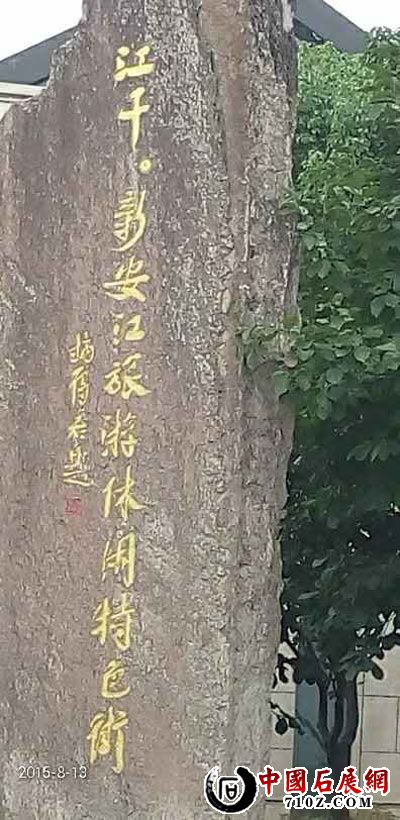 江干。新安江旅游休闲特色街
题
2015-8-13
中國石展網
710Z.COM